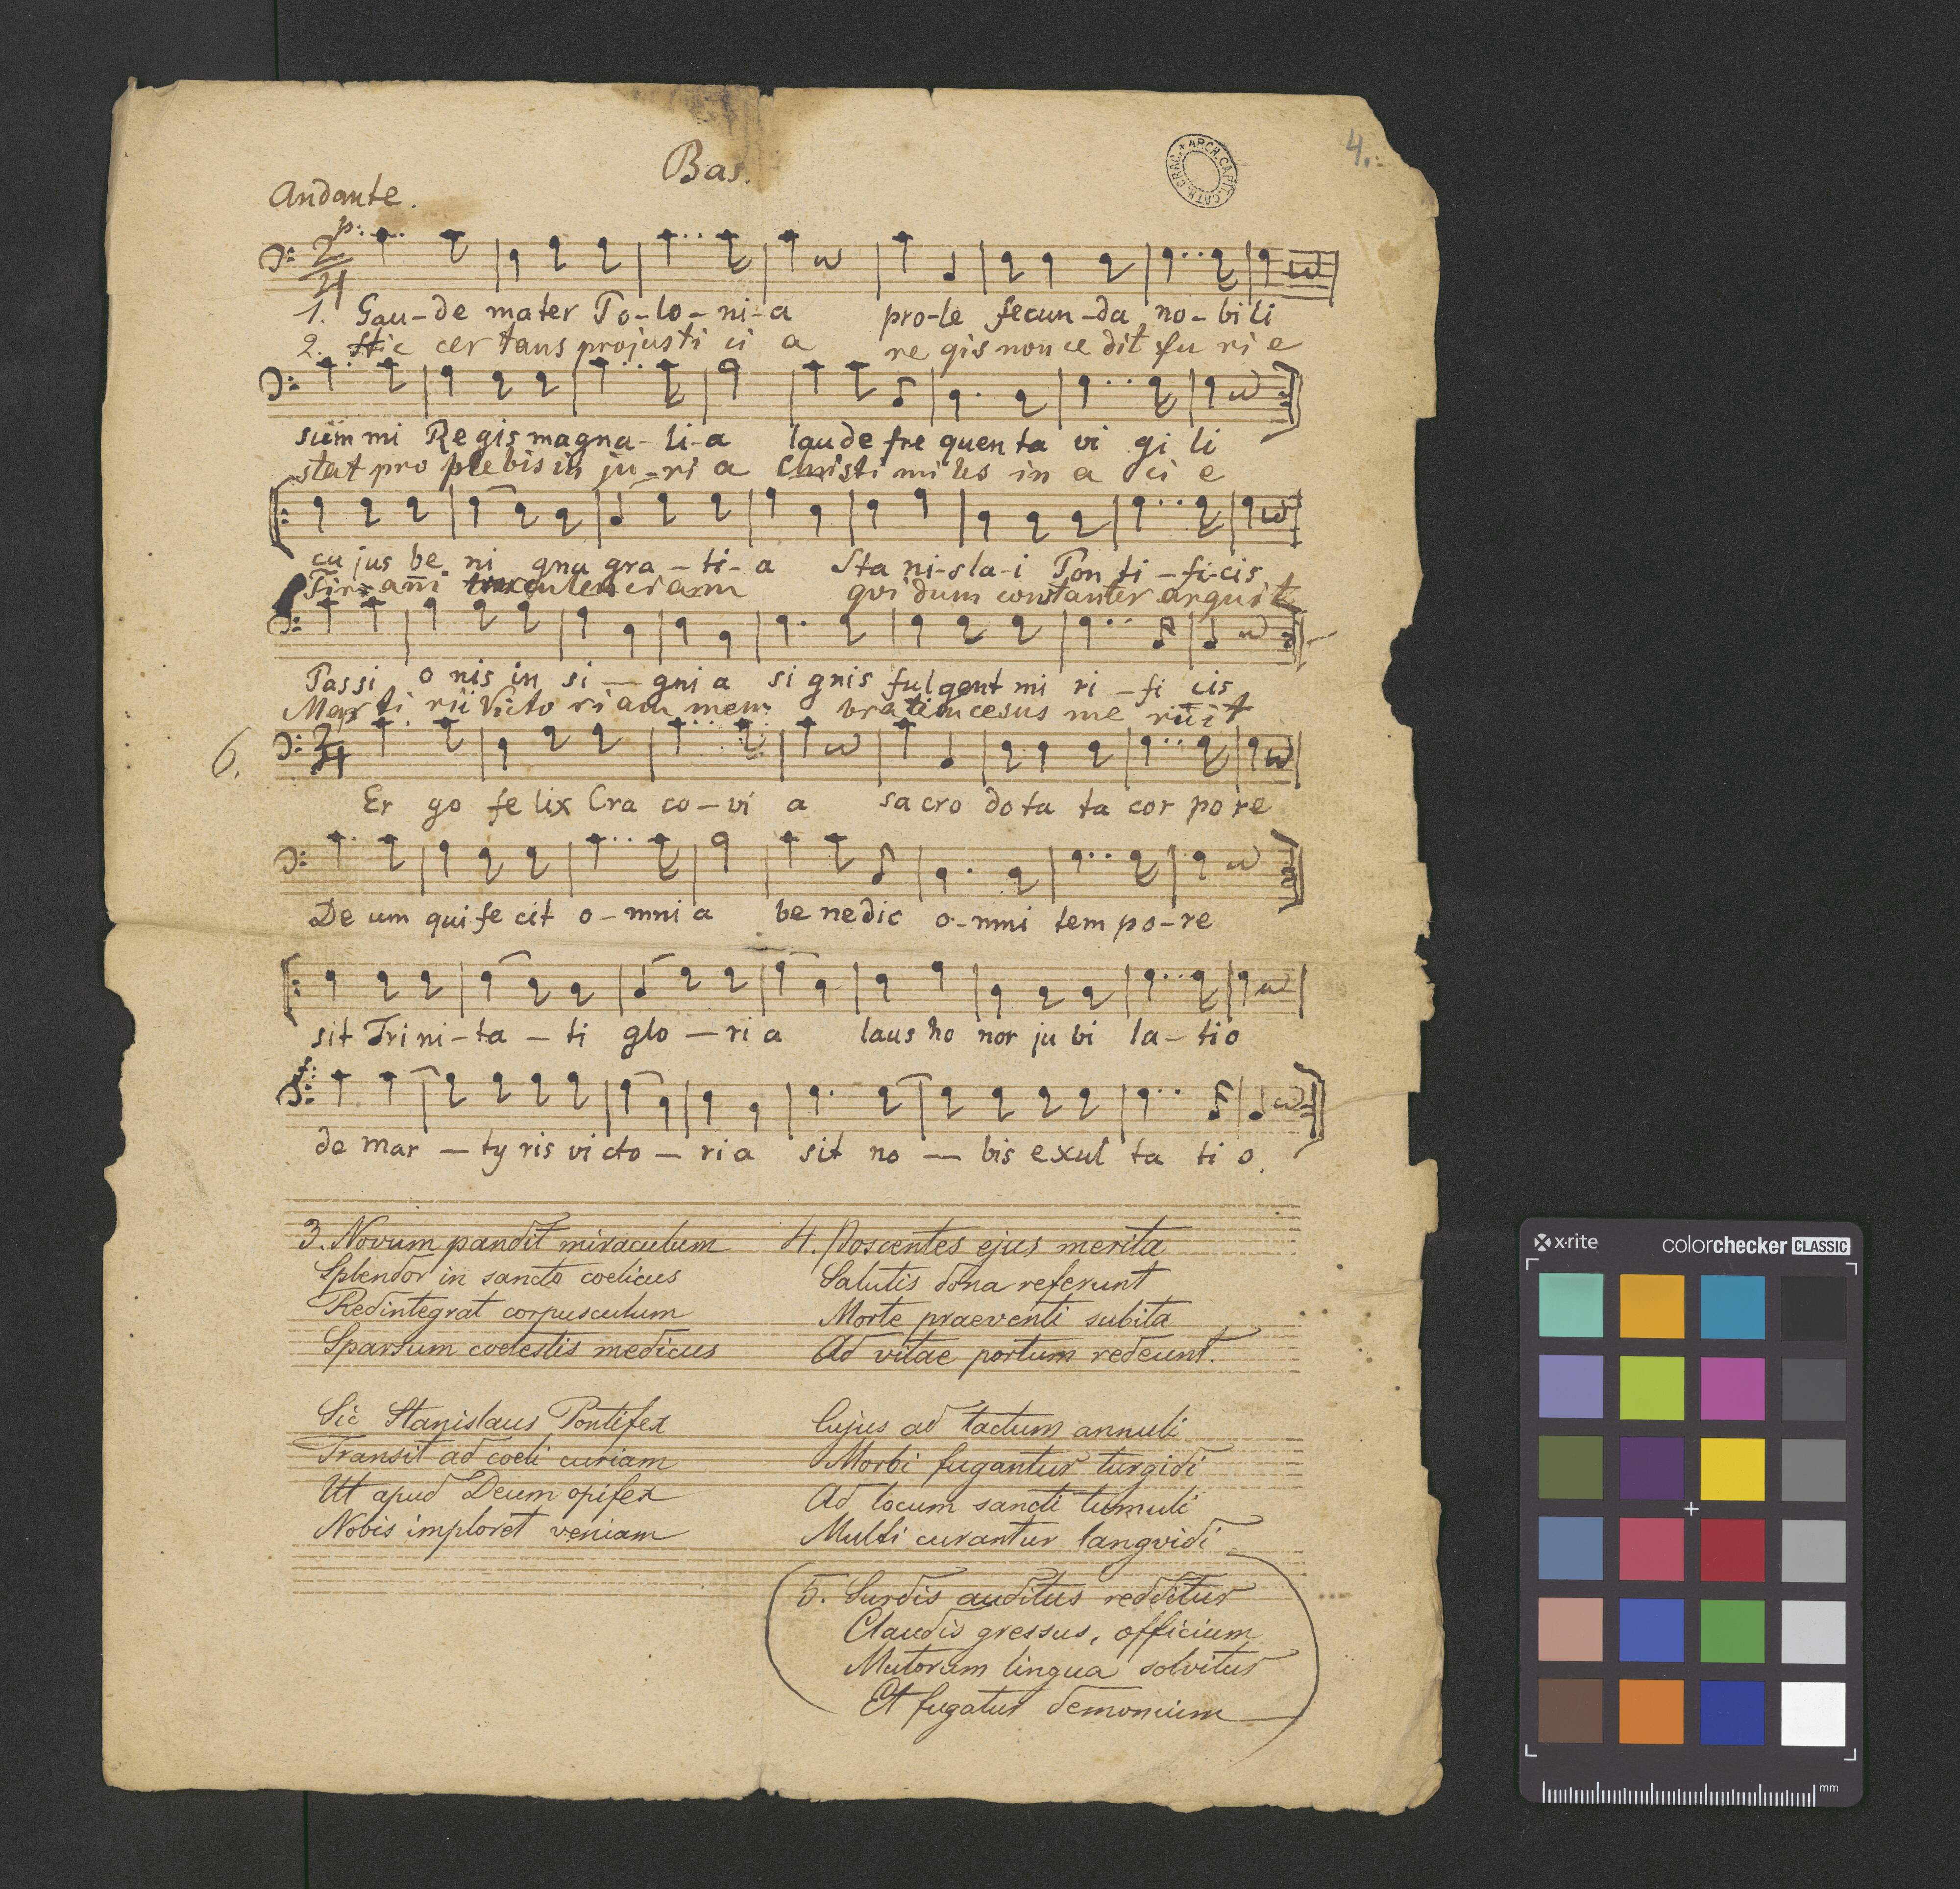 4.
Bas.
ARCH. CAPIT. CATH. CRAC.
Andante.
p:
2/4
1. Gau-de mater Po-lo-ni-a pro-le fecun-da no-bili
2. Hic cer tans projusti ci a re gis non ce dit fu ri e
sum mi Regis magna-li-a laude fre quen ta vi gi li
stat pro plebis in ju-ri a Christi miles in a ci e
cu jus be ni gna gra-ti-a Sta ni-sla-i Pon ti-fi-cis
Tir anni truculenciam qui dum constanter arguit
Passi o nis in si-gni a si gnis fulgent mi ri-fi cis
Mar ti rii Victo riam mem bratim cesus me ruit
6. 2/4
Er go fe lix Cra co-vi a sa cro do ta ta cor po re
De um qui fe cit o-mni a be nedic o-mni tem po-re
sit Tri ni-ta-ti glo-ri a laus ho nor ju bi la-tio
f:
de mar-ty ris victo-ri a sit no-bis exul ta ti o.
3. Novum pandit miraculum
Splendor in sancto coelicus
Redintegrat corpusculum
Sparsum coelestis medicus
Sic Stanislaus Pontifex
Transit ad coeli curiam
Ut apud Deum opifex
Nobis imploret veniam
4. Poscentes ejus merita
Salutis dona referunt
Morte praeventi subita
Ad vitae portum redeunt.
Cujus ad tactum annuli
Morbi fugantur turgidi
Ad locum sancti tumuli
Multi curantur langvidi
5. Surdis auditus redditur
Claudis gressus, officium
Mutorum lingua solvitur
Et fugatur demonium
x-rite colorchecker CLASSIC
mm